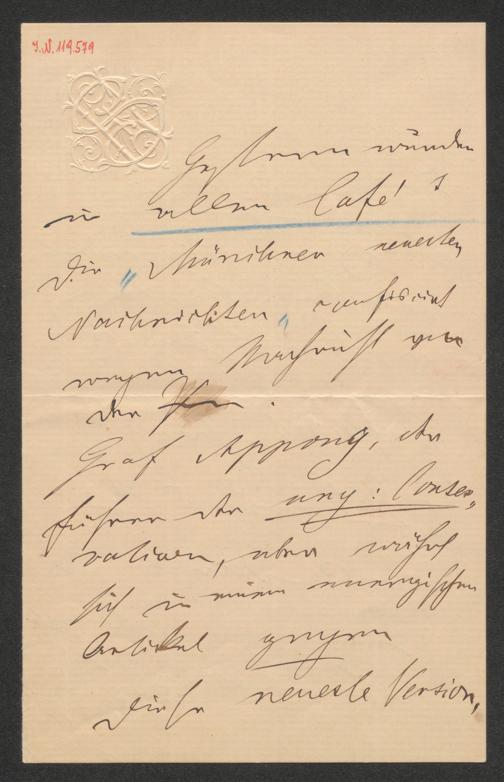 I.N. 119.579
Gestern wurden
in allen Café's
die „Münchner neuesten
Nachrichten" confiscirt
wegen Nachricht von
der
Graf Appony, der
Führer der ung: Conser„
vativen, aber
sich in einem energischen
Artikel gegen
diese neueste Version,